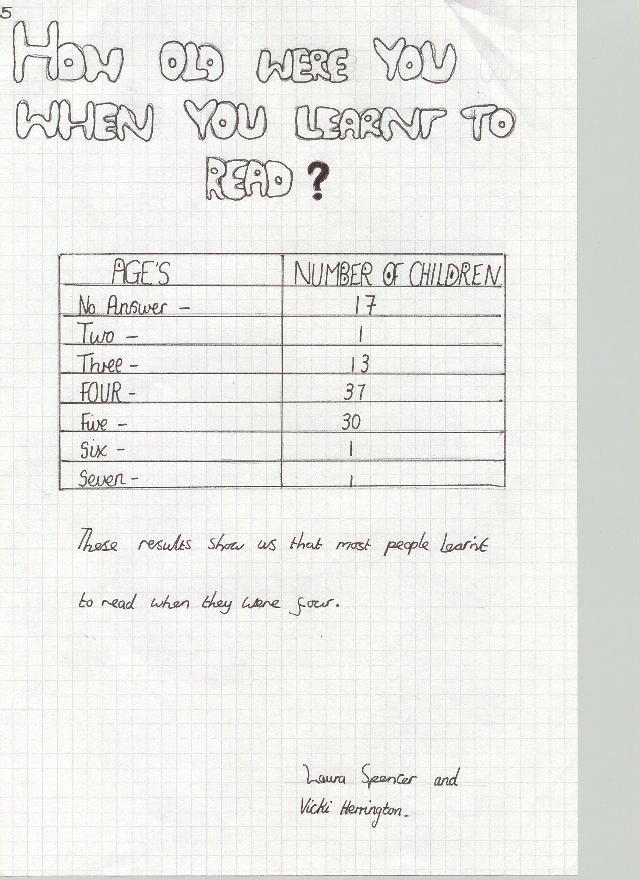 5
HOW OLD WERE YOU
WHEN YOU LEARNT TO
READ ?
AGE'S NUMBER OF CHILDREN
No Answer - 17
Two - 1
Three - 13
FOUR - 37
Five - 30
Six - 1
Seven - 1
These results show us that most people learnt
to read when they were four.
Laura Spencer and
Vicki Herrington.